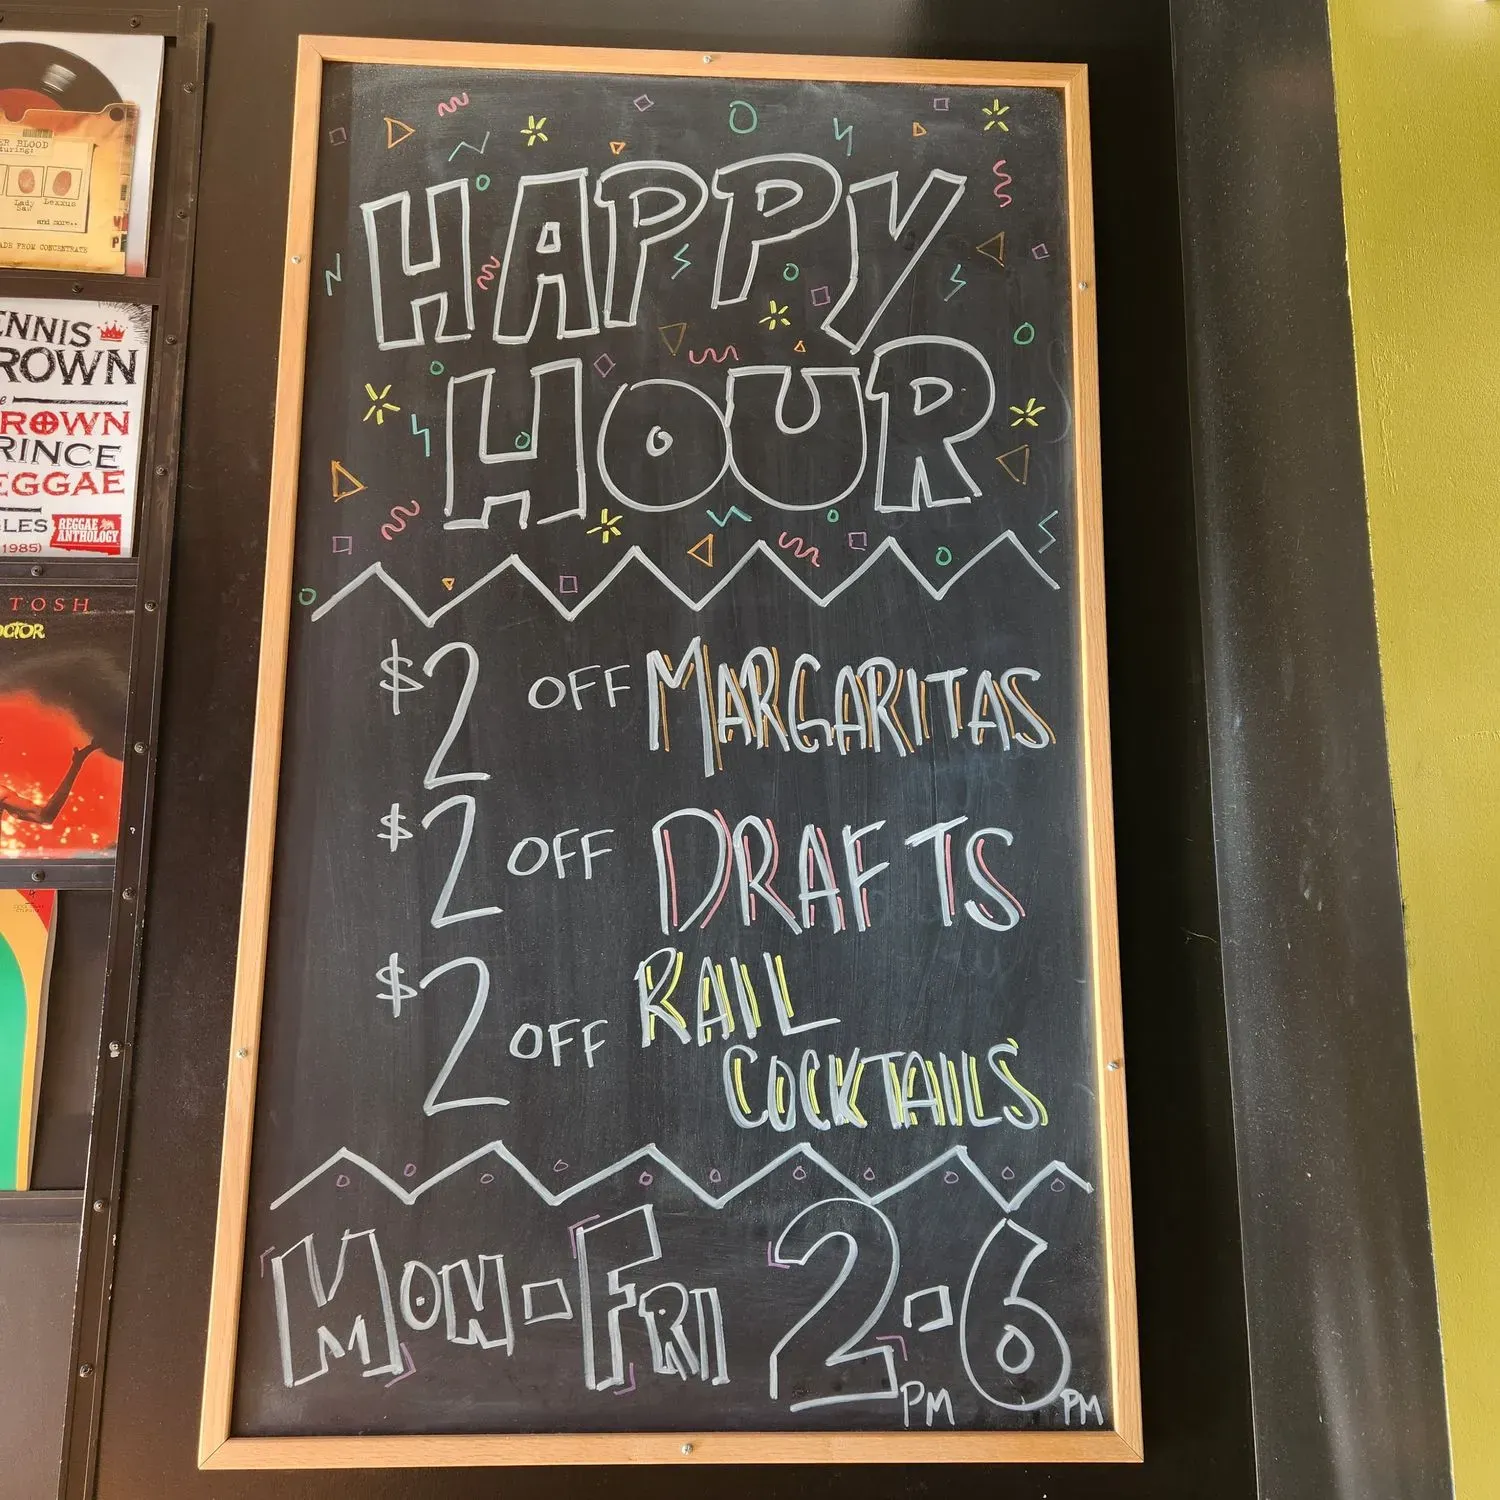 HAPPY
HOUR
$2 OFF MARGARITAS
$2 OFF DRAFTS
$2 OFF RAIL
COCKTAILS
MON-FRI 2PM-6PM
BLOOD
Lady
Saw
Lexxus
and more..
MADE FROM CONCENTRATE
ENNIS
ROWN
ROWN
RINCE
EGGAE
LES
REGGAE
ANTHOLOGY
1985)
TOSH
OCTOR